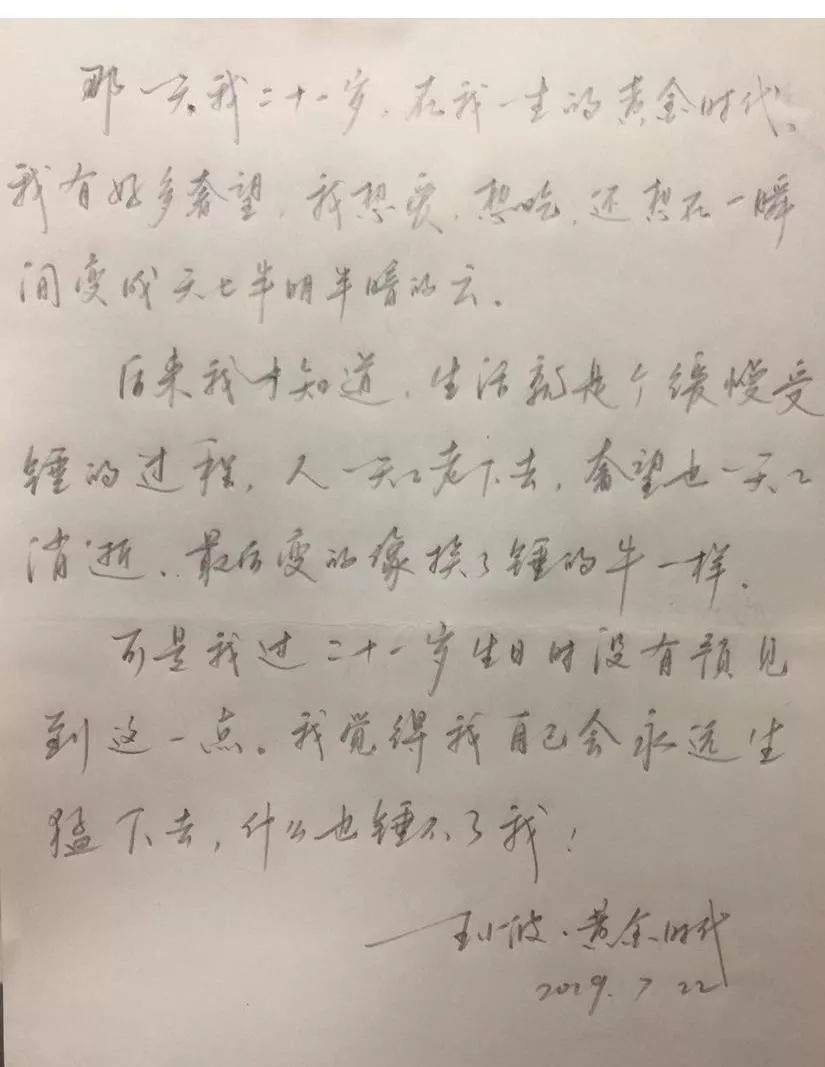 那一天我二十一岁，在我一生的黄金时代、
我有好多奢望，我想爱，想吃，还想在一瞬
间变成天上半明半暗的云。
后来我才知道，生活就是个缓慢受
锤的过程，人一天天老下去，奢望也一天天
消逝，最后变的像挨了锤的牛一样。
可是我过二十一岁生日时没有预见
到这一点。我觉得我自己会永远生
猛下去，什么也锤不了我！
——王小波·黄金时代
2019.7.22